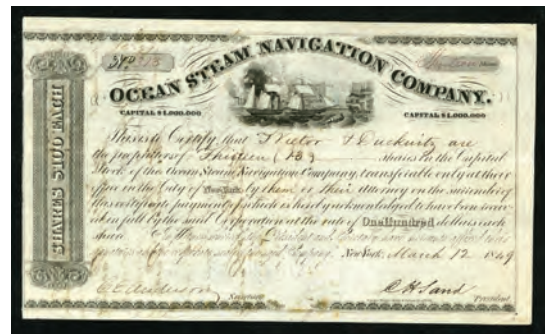 No 313
Thirteen
OCEAN STEAM NAVIGATION COMPANY.
CAPITAL $1.000.000 CAPITAL $1.000.000
SHARES $100 EACH
This is to Certify, that Wietor & Duckwitz are
the proprietors of Thirteen (13) shares in the Capital
Stock of the Ocean Steam Navigation Company, transferable only at their
office in the City of New York, by them or their attorney on the surrender of
this certificate, payment of which is hereby acknowledged to have been
in full by the said Corporation at the rate of One Hundred dollars each
share. In the President and Secretary have
Company. New York, March 12 1849
Secretary
C H Sand
President